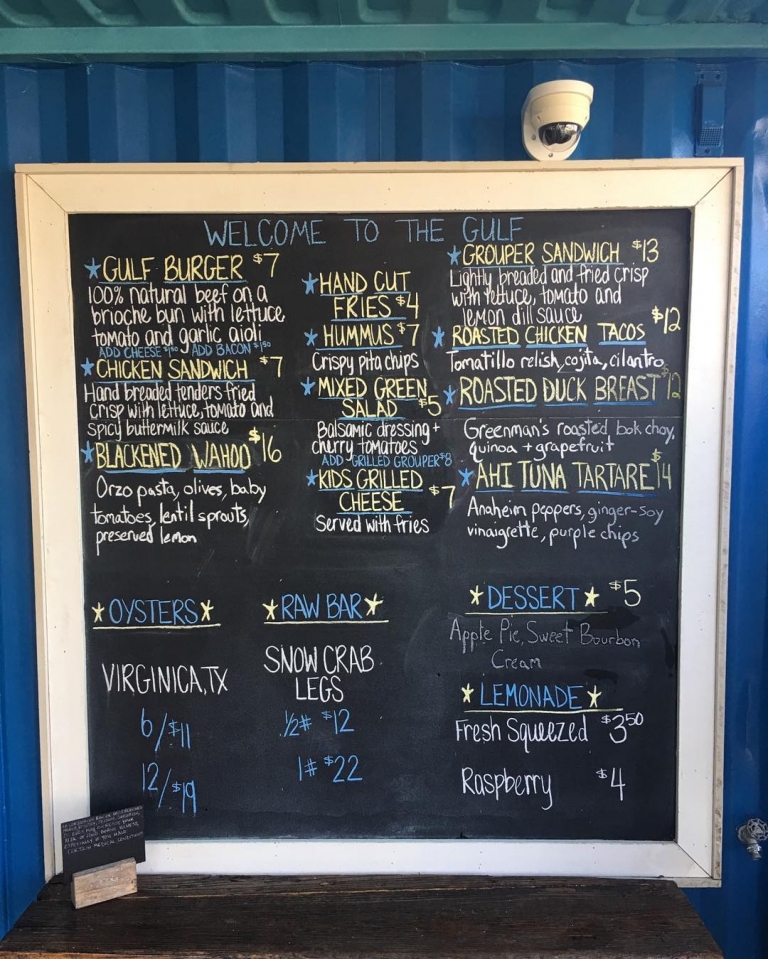 WELCOME TO THE GULF
GULF BURGER $7
100% natural beef on a
brioche bun with lettuce
tomato and garlic aioli
ADD CHEESE $1.50 ADD BACON $1.50
CHICKEN SANDWICH $7
Hand breaded tenders fried
crisp with lettuce, tomato and
spicy buttermilk sauce
BLACKENED WAHOO $16
Orzo pasta, olives, baby
tomatoes, lentil sprouts,
preserved lemon
HAND CUT
FRIES $4
HUMMUS $7
Crispy pita chips
MIXED GREEN
SALAD $5
Balsamic dressing +
cherry tomatoes
ADD GRILLED GROUPER $8
KIDS GRILLED
CHEESE $7
Served with fries
GROUPER SANDWICH $13
Lightly breaded and fried crisp
with lettuce, tomato and
lemon dill sauce
ROASTED CHICKEN TACOS $12
Tomatillo relish, cojita, cilantro
ROASTED DUCK BREAST $12
Greenman's roasted bok choy,
quinoa + grapefruit
AHI TUNA TARTARE $14
Anaheim peppers, ginger-soy
vinaigrette, purple chips
OYSTERS
VIRGINICA, TX
6/$11
12/$19
RAW BAR
SNOW CRAB
LEGS
1/2# $12
1# $22
DESSERT $5
Apple Pie, Sweet Bourbon
Cream
LEMONADE
Fresh Squeezed $3.50
Raspberry $4